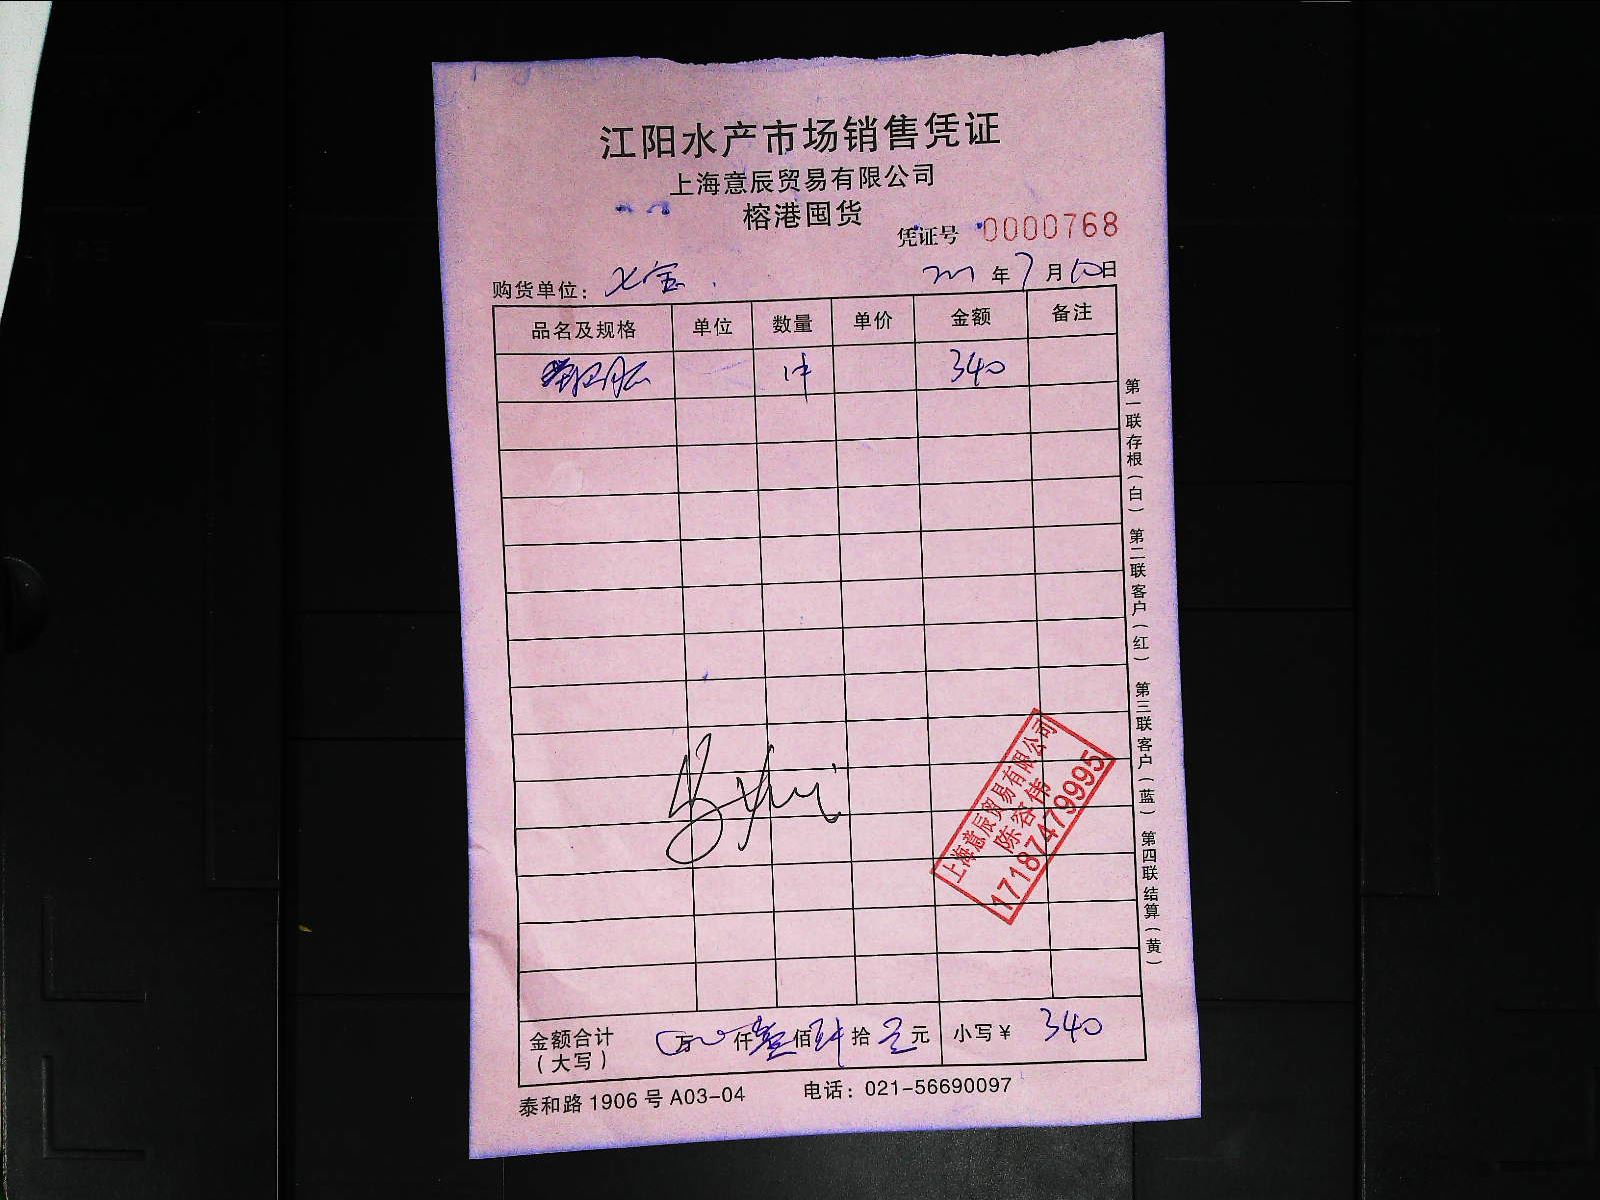 江阳水产市场销售凭证
上海意辰贸易有限公司
榕港囤货
凭证号 0000768
购货单位：七宝 年7月10日
品名及规格 单位 数量 单价 金额 备注
1件 340
第一联存根（白） 第二联客户（红） 第三联客户（蓝） 第四联结算（黄）
上海意辰贸易有限公司
陈容伟
17187479995
金额合计（大写） 万 仟 叁 佰 肆 拾 元 小写￥ 340
泰和路 1906 号 A03-04 电话：021-56690097